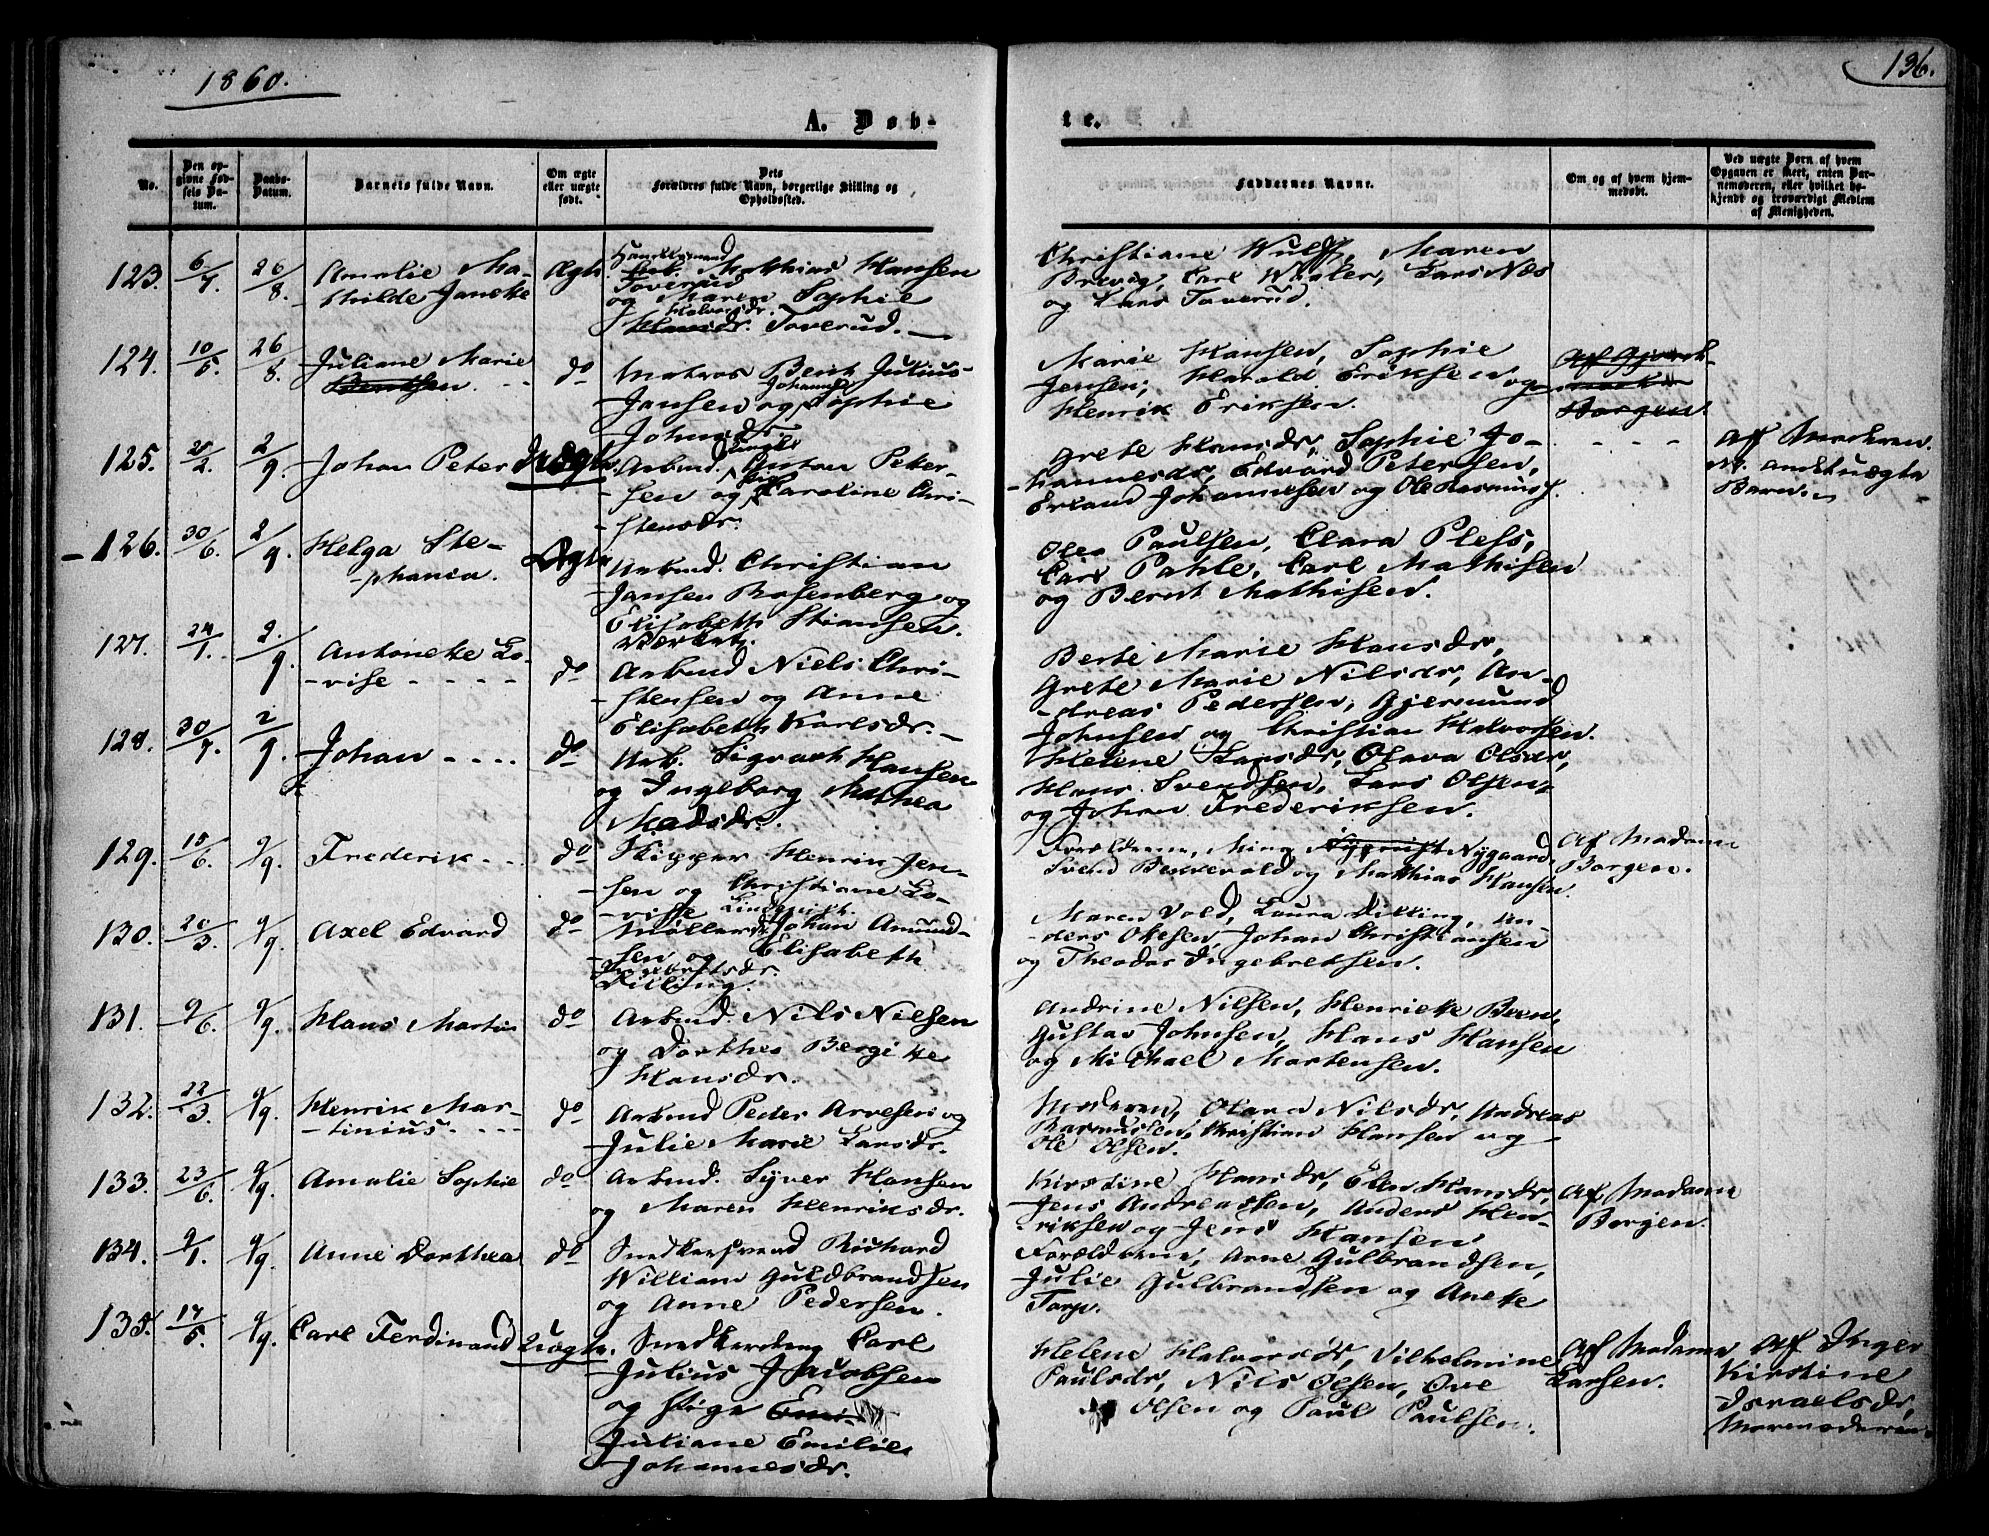 1860.
136.
A. Døb-
te.
No.
Den op-
givne Fød-
sels Da-
tum.
Daabs-
Datum.
Barnets fulde Navn.
Om ægte
eller uægte
født.
Dets
Forældres fulde Navn, borgerlige Stilling og
Opholdssted.
Faddernes Navne.
Om og af hvem hjem-
medøbt.
Ved uægte Børn af hvem
Opgaven er skeet, enten Bar-
nemoderen, eller hvilket be-
kjendt og troværdigt Medlem
af Menigheden.
123. 6/7 26/8. Amalie Ma-
thilde Janeke
Ægte
Mathias Hansen
Toverud
og Maren Sophie
Halvorsdr.
Hansdr. Toverud.
Christiane Wulff, Maren
Brevig, Carl Wigler, Lars Næs
og Lars Toverud.
124. 10/5. 26/8. Juliane Marie
Berntsen.
do
Matros Bent Julius
Johanne
Jansen og Sophie
Johnsdr.
Marie Hansen, Sophie
Jensen, Harald Eriksen og
Henrik Eriksen.
Borgen
125. 20/2. 2/9. Johan Peter
Uægte
Arbmd. Anton Peter-
sen og Pige Caroline Chri-
stensdr.
Grete Hansdr, Sophie Jo-
hannesdr, Edvard Petersen,
Erland Johannesen og Ole Rasmuss.
Af Moderen.
Barn.
126. 30/6. 2/9. Helga Ste-
phania.
Ægte
Arbmd. Christian
Jansen Rosenberg og
Elisabeth Stiansen.
Paulsen, Clara Pless,
Carl Pahle, Carl Mathisen
og Bernt Mathisen.
127. 24/1. 2/9. Antoneke Lo-
vise
do
Arbmd Niels Chri-
stensen og Anne
Elisabeth Karlsdr.
Berte Marie Hansdr,
Grete Marie Nilsdr, An-
dreas Pedersen, Gjermund
Johnsen og Christian Halvorsen.
128. 30/7. 2/9. Johan
do
Arb. Sigvart Hansen
og Ingeborg Mathea
Madsdr.
Helene Larsdr, Olava Olsdr,
Hans Svendsen, Lars Olsen
og Johan Frederiksen.
129. 15/6. 9/9. Frederik
do
Skipper Henrik Jen-
sen og Christiane Lo-
vise
Forældrene, Mina Nygaard,
Svend Bekkevold og Mathias Hansen.
Af Madame
Borgen.
130. 20/3. 9/9. Axel Edvard
do
Johan Amund-
sen og Elisabeth
Dilling.
Maren Vold, Laura Dilling, An-
ders Olesen, Johan Christiansen
og Theodor Ingebretsen.
131. 9/6. 9/9. Hans Martin
do
Arbmd. Nils Nilsen
og Dorthea Bergitte
Hansdr.
Andrine Nilsen, Henrieke Been,
Gustav Johnsen, Hans Hansen
og Michael Mortensen.
132. 22/3. 9/9. Henrik Mar-
tinius.
do
Arbmd Peder Arvesen og
Julie Marie Larsdr.
Moderen, Olava Nilsdr, Andreas
Rasmussen, Christian Hansen og
Ole Olsen.
133. 23/6. 9/9. Amalie Sophie
do
Arbmd. Syver Hansen
og Maren Henriksdr.
Kirstine Hansdr, Elen Hansdr,
Jens Andreassen, Anders Hen-
riksen og Jens Hansen
Af Madame
Borgen.
134. 9/1. 9/9. Anne Dorthea
do
Snedkersvend Richard
William Guldbrandsen
og Anne Pedersen.
Forældrene, Arne Gulbrandsen,
Julie Gulbrandsen og Aneke
Torp.
135. 17/5. 9/9. Carl Ferdinand
Uægte.
Carl
Julius Jacobsen
og Pige
Juliane Emilie
Johannesdr.
Helene Halvorsdr, Vilhelmine
Paulsdr, Nils Olsen, Ove
Olsen og Paul Paulsen.
Af Madame
Larsen.
Af Inger
Kirstine
Israelsdr,
Mormoderen.